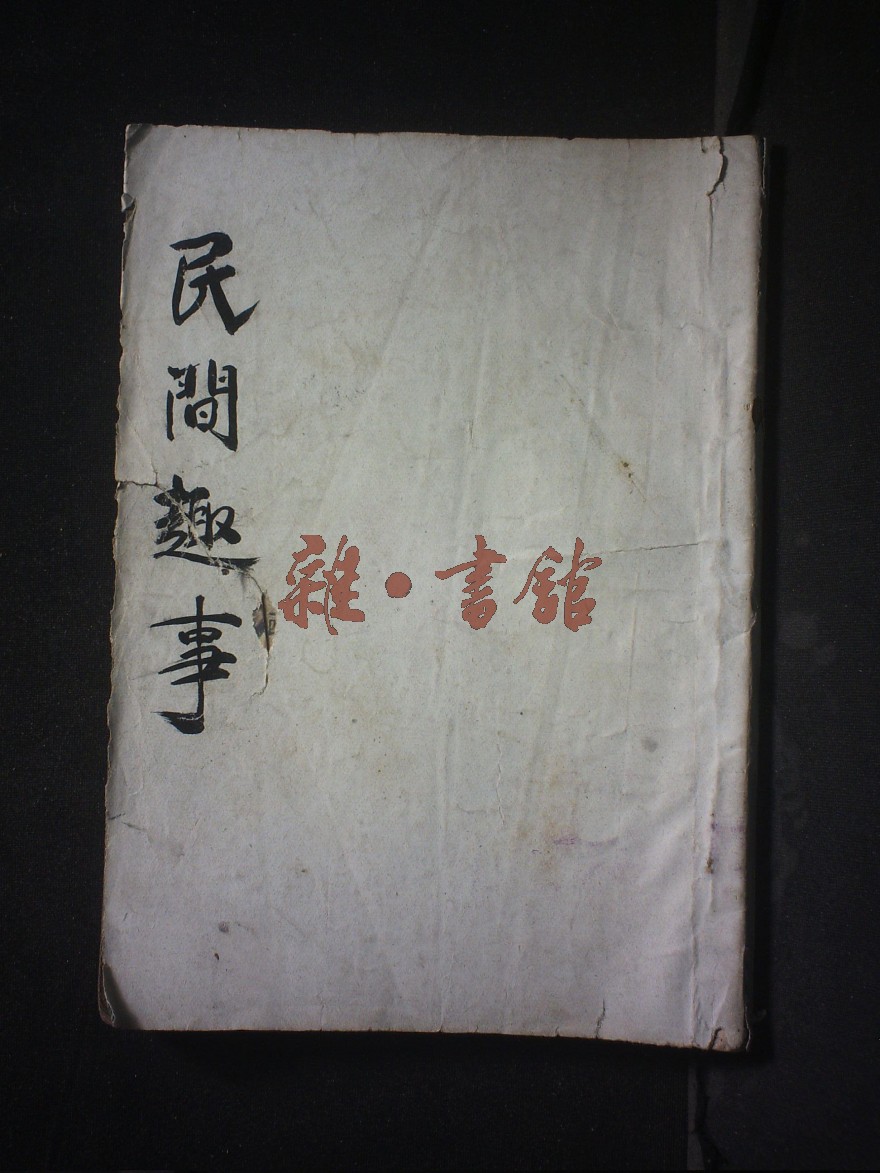 民間趣事
雜·書館